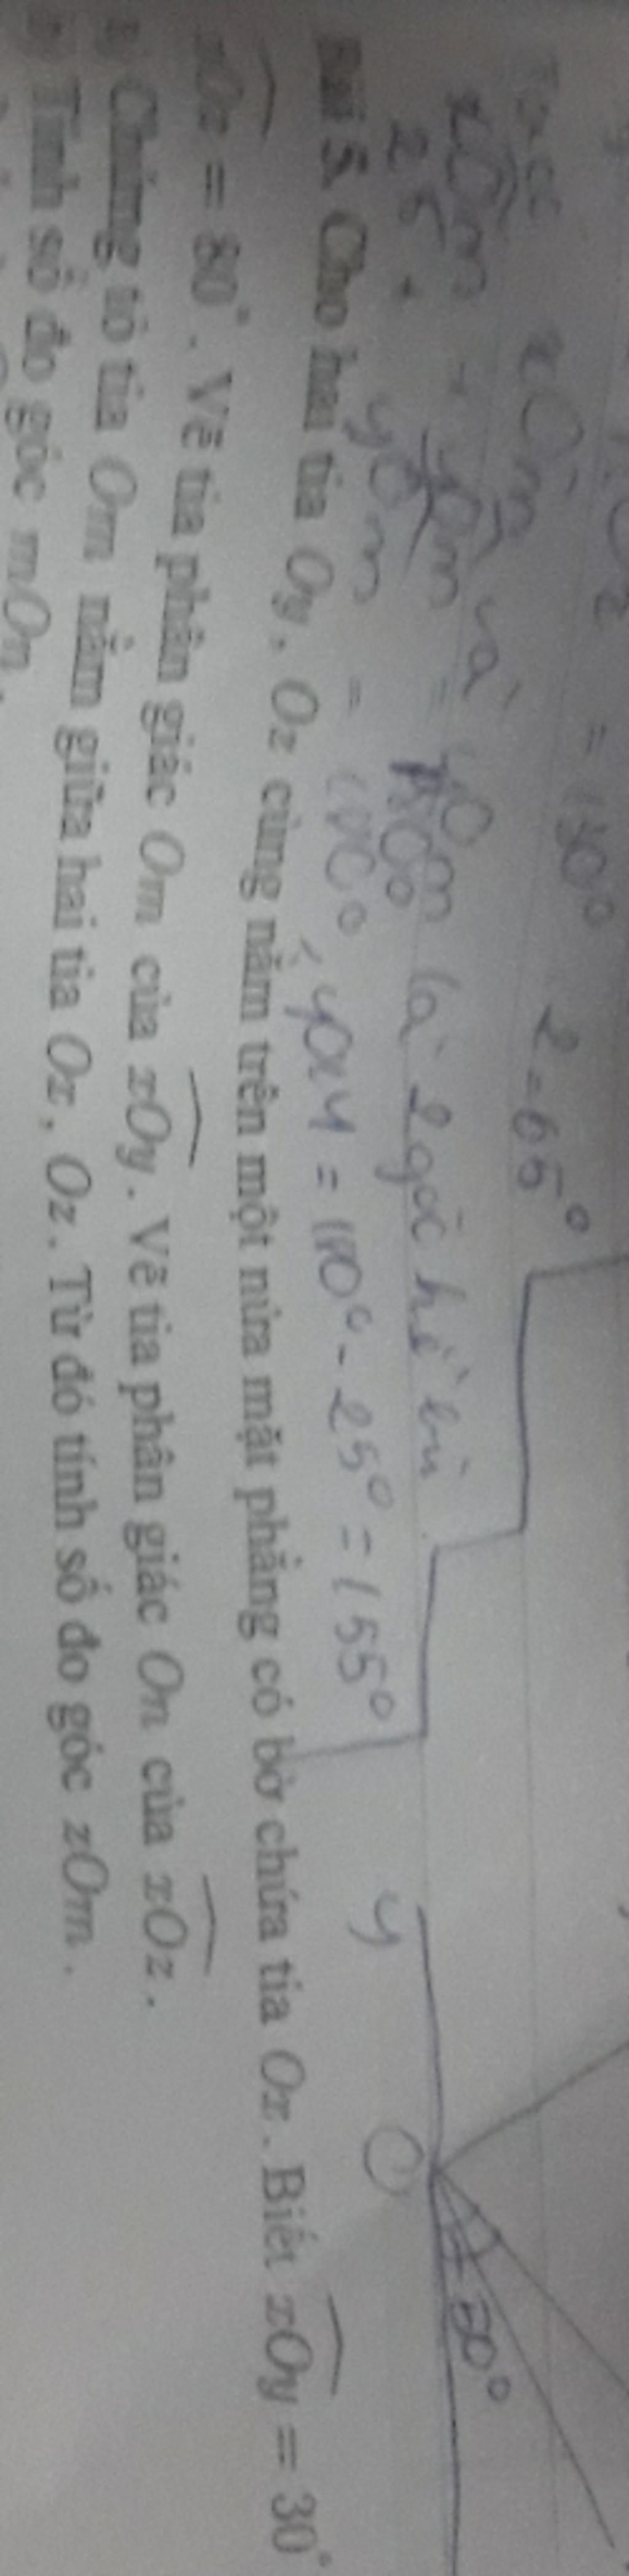 = 180°
2 = 65°
xOm và yOm là 2 góc kề bù
xOm + yOm = 180°
25 + yOm = 180°, yOm = 180° - 25° = 155°
y
O
50°
Bài 5. Cho hai tia Oy, Oz cùng nằm trên một nửa mặt phẳng có bờ chứa tia Ox. Biết xOy = 30°
xOz = 80°. Vẽ tia phân giác Om của xOy. Vẽ tia phân giác On của xOz.
a) Chứng tỏ tia Om nằm giữa hai tia Ox, Oz. Từ đó tính số đo góc zOm.
b) Tính số đo góc mOn.